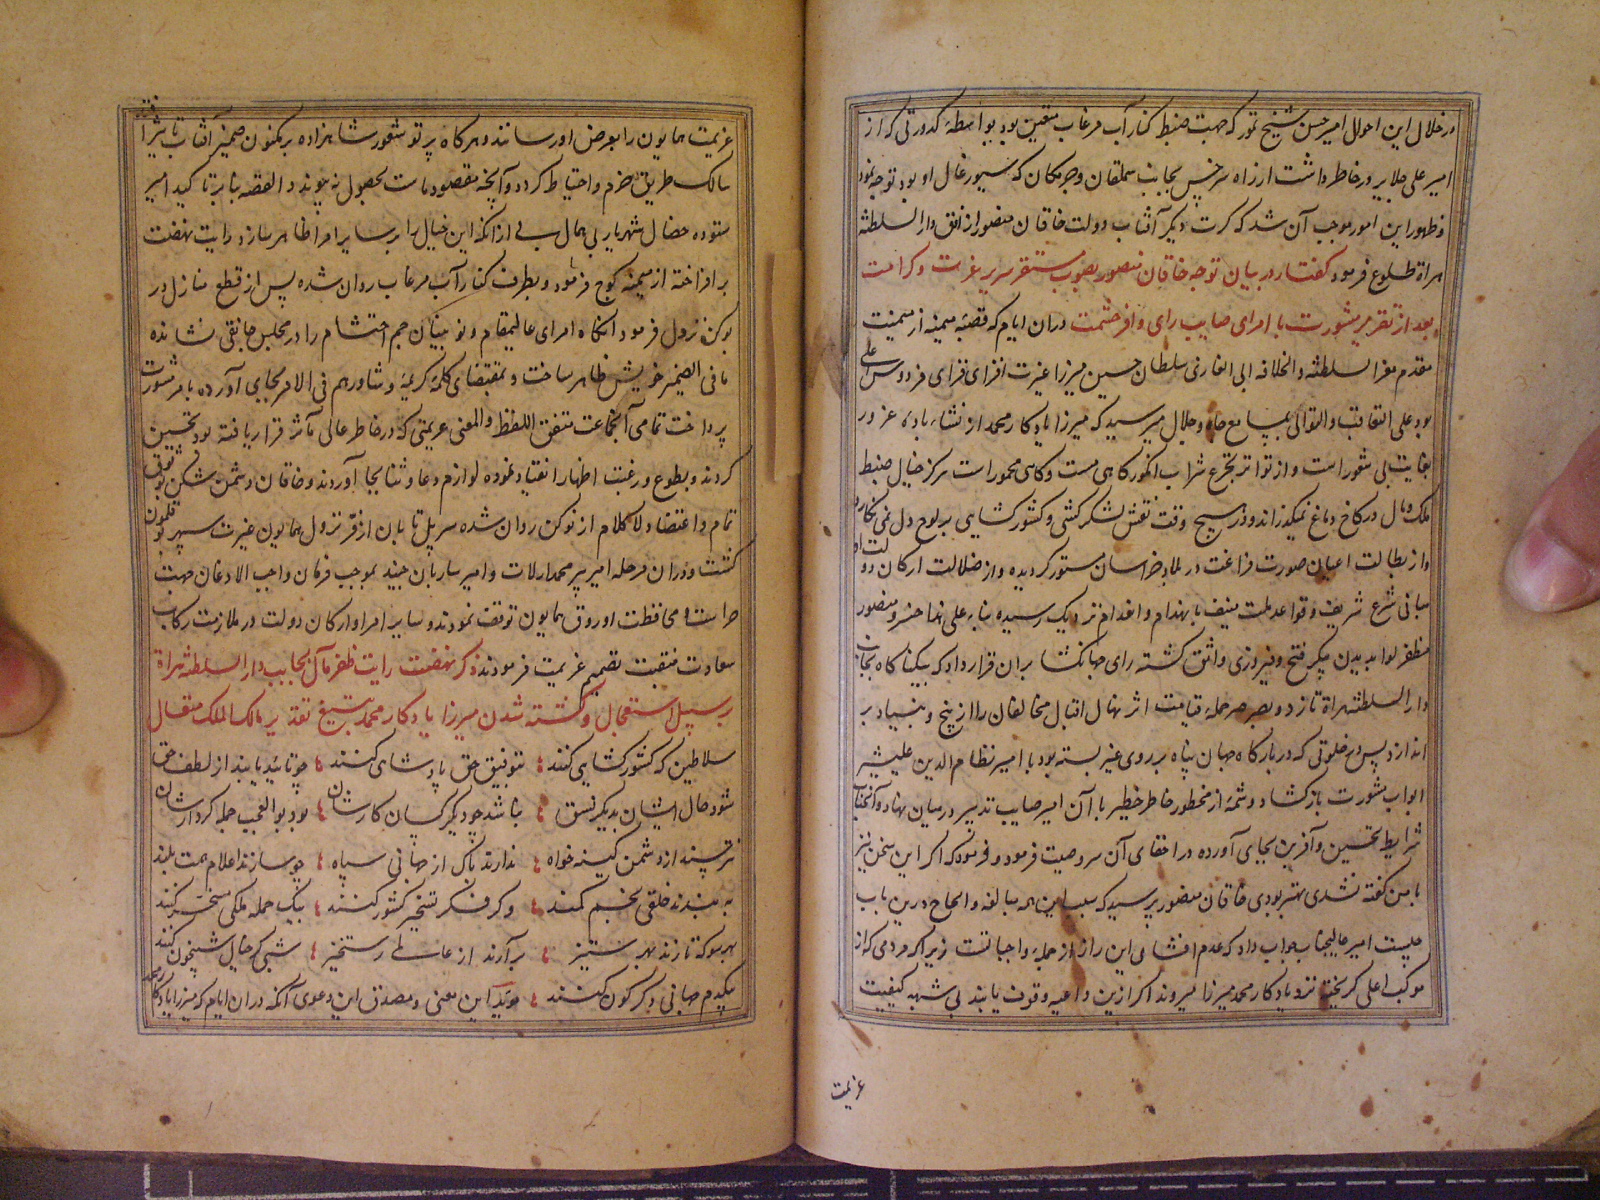 در خلال این احوال امیر حسن شیخ تمور که جهت ضبط کنار آب مرغاب متعین بود بواسطهٔ کدورتی که از
امیر علی جلایر در خاطر داشت از راه سرخس بجانب سملقان و جرمکان که سیورغال او بود توجه نمود
و ظهور این امور موجب آن شد که کرت دیگر آفتاب دولت خاقان منصور از افق دار السلطنه
هراة طلوع فرمود گفتار در بیان توجه خاقان منصور بصوب مستقر سریر عزت و کرامت
بعد از تقریر مشورت با امرای صایب رای وافر حشمت در آن ایام که قصبهٔ میمنه از میمنت
مقدم معز السلطنه و الخلافه ابی الغازی سلطان حسین میرزا غیرت افزای فزای فردوس اعلی
بود علی التعاقب و التوالی بمسامع جاه و جلال میرسید که میرزا یادکار محمد از نشاء باده عز ور
بغایت بی شعور است و از تواتر تجرع شراب انکور کاهی مست و کاهی مخمور است هرکز خیال ضبط
ملک و مال در کاخ دماغ نمیکذراند و در هیچ وقت نقش لشکرکشی و کشورکشایی بر لوح دل نمی نکارد
و از بطالت اعیان صورت فراغت در بلاد خراسان مستور کردیده و از ضلالت ارکان دولت او
مبانی شرع شریف و قواعد ملت منیف بانهدام و انعدام نزدیک رسیده بناء علی هذا خسرو منصور
مظفر لوا بدیدن پیکر فتح و فیروزی واثق کشته رای جهانکشا بران قرار داد که بیکناکاه بجانب
دار السلطنه هراة تازد و بصرصر حملهٔ قیامت اثر نهال اقبال مخالفان را از بیخ و بنیاد بر
اندازد پس در خلوتی که در بارکاه جهان پناه بر روی غیر بسته بود با امیر نظام الدین علیشیر
ابواب مشورت بازکشاد و شمهٔ از مخطور خاطر خطیر با آن امیر صایب تدبیر در میان نهاد و آنجناب
شرایط تحسین و آفرین بجای آورده در اخفای آن سر وصیت فرمود و فرمود که اکر این سخن نیز
با من کفته نشدی بهتر بودی خاقان منصور پرسید که سبب این همه مبالغه و الحاح درین باب
چیست امیر عالیجناب جواب داد که عدم افشای این راز از جمله واجباتست زیرا که مردمی که از
موکب اعلی کریخته نزد یادکار محمد میرزا میروند اکر ازین داعیه وقوف یابند بی شبهه کیفیت
عزیمت
عزیمت همایون را بعرض او رسانند و هرکاه پرتو شعور شاهزاده بر مکنون ضمیر آفتاب تاثیر افتد
سالک طریق حزم و احتیاط کردد و آنچه مقصود ماست بحصول نه پیوندد القصه بنابر تاکید امیر
ستوده خصال شهریار بی همال بی از آنکه این خیال را بر سایر امرا ظاهر سازد رایت نهضت
بر افراخته از میمنه کوچ فرمود و بطرف کنار آب مرغاب روان شده پس از قطع منازل در
نوکن نزول فرمود آنکاه امرای عالیمقام و نویینان جم احتشام را در مجلس جانقی نشانده
ما فی الضمیر خویش ظاهر ساخت و بمقتضای کلمهٔ کریمهٔ و شاورهم فی الامر بجای آورده بامر مشورت
پرداخت تمامی آنجماعت متفق اللفظ و المعنی عزیمتی که در خاطر عالی مآثر قرار یافته بود تحسین
کردند و بطوع و رغبت اظهار انقیاد نموده لوازم دعا و ثنا بجا آوردند و خاقان دشمن شکن بوثوق
تمام و اعتضاد لا کلام از نوکن روان شده سرپل تابان از فر نزول همایون غیرت سپهر بوقلمون
کشت و در آن مرحله امیر پیر محمد ارلات و امیر ساربان جنید بموجب فرمان واجب الاذعان جهت
حراست و محافظت اوروق همایون توقف نمودند و سایر امرا و ارکان دولت در ملازمت رکاب
سعادت منقبت تصمیم عزیمت فرمودند ذکر نهضت رایت ظفر مآل بجانب دار السلطنه هراة
بر سبیل استعجال و کشته شدن میرزا یادکار محمد بتیغ تقدیر مالک الملک متعال
سلاطین که کشورکشایی کنند بتوفیق حق پادشاهی کنند چو تائید یابند از لطف حق
شود حال ایشان بدیکر نسق نباشد چو دیکر کسان کارشان بود بو العجب جمله کردارشان
نترسند از دشمن کینه خواه ندارند باک از جهانی سپاه چو سازند اعلام همت بلند
ببندند خلقی بخم کمند و کر فکر تسخیر کشور کنند بیک حمله ملکی مسخر کنند
بهر سو که تازند بهر ستیز برآرند از عالمی رستخیز شبی کر خیال شبیخون کنند
بیکدم جهانی دکرکون کنند موید این معنی و مصدق این دعوی آنکه در آن ایام که میرزا یادکار محمد